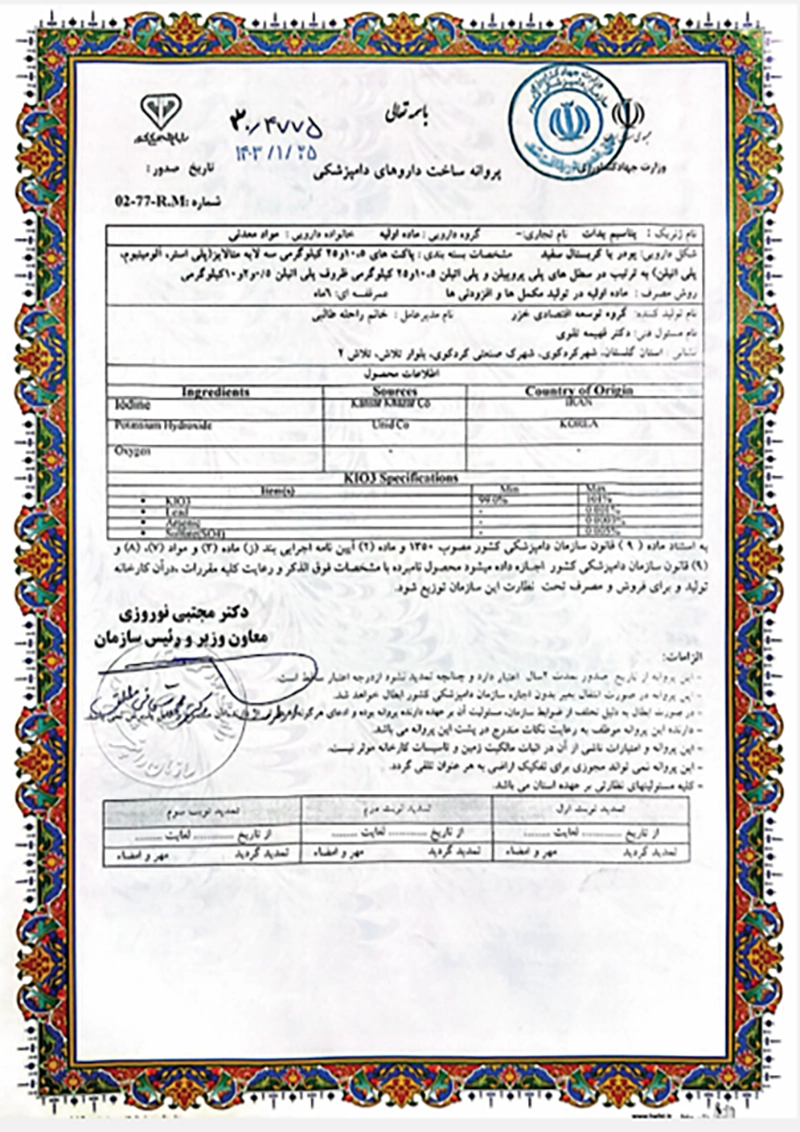 باسمه تعالی
۳۰/۴۷۷۵
۱۴۰۳/۱/۲۵
وزارت جهاد کشاورزی
پروانه ساخت داروهای دامپزشکی
تاریخ صدور :
شماره: 02-77-R.M
نام ژنریک : پتاسیم یدات نام تجاری:- گروه دارویی : ماده اولیه خانواده دارویی : مواد معدنی
شکل دارویی: پودر یا کریستال سفید مشخصات بسته بندی : پاکت های ۱۰،۵و۲۵ کیلوگرمی سه لایه متالایز(پلی استر، آلومینیوم،
پلی اتیلن) به ترتیب در سطل های پلی پروپیلن و پلی اتیلن ۱۰،۵و۲۵ کیلوگرمی ظروف پلی اتیلن ۰/۵و۲و۱۰کیلوگرمی
روش مصرف : ماده اولیه در تولید مکمل ها و افزودنی ها عمرقفسه ای: ۶ماه
نام تولید کننده: گروه توسعه اقتصادی خزر نام مدیرعامل : خانم راحله طالبی
نام مسئول فنی: دکتر فهیمه
نشانی : استان گلستان، شهرکردکوی، شهرک صنعتی کردکوی، بلوار تلاش، تلاش ۲
اطلاعات محصول
Ingredients Sources Country of Origin
Iodine Kansar Khazar Co IRAN
Potassium Hydroxide Unid Co KOREA
Oxygen - -
KIO3 Specifications
Item(s) Min Max
KIO3 99.0% 101%
Lead -
Arsenic -
Sulfate(SO4) -
به استناد ماده ( ۹ ) قانون سازمان دامپزشکی کشور مصوب ۱۳۵۰ و ماده (۲) آیین نامه اجرایی بند (ز) ماده (۳) و مواد (۷)، (۸) و
(۹) قانون سازمان دامپزشکی کشور اجازه داده میشود محصول نامبرده با مشخصات فوق الذکر و رعایت کلیه مقررات ،درآن کارخانه
تولید و برای فروش و مصرف تحت نظارت این سازمان توزیع شود.
دکتر مجتبی نوروزی
معاون وزیر و رئیس سازمان
الزامات:
- این پروانه از تاریخ صدور بمدت ۲سال اعتبار دارد و چنانچه تمدید نشود ازدرجه اعتبار ساقط است.
- این پروانه در صورت انتقال بغیر بدون اجازه سازمان دامپزشکی کشور ابطال خواهد شد.
- در صورت ابطال به دلیل تخلف از ضوابط سازمان، مسئولیت آن برعهده دارنده پروانه بوده و ادعای هرگونه
- دارنده این پروانه موظف به رعایت نکات مندرج در پشت این پروانه می باشد.
- این پروانه و امتیازات ناشی از آن در اثبات مالکیت زمین و تاسیسات کارخانه موثر نیست.
- این پروانه نمی تواند مجوزی برای تفکیک اراضی به هر عنوان تلقی گردد.
- کلیه مسئولیتهای نظارتی بر عهده استان می باشد.
تمدید نوبت اول تمدید نوبت دوم تمدید نوبت سوم
از تاریخ ............ لغایت ........ از تاریخ ............ لغایت ........ از تاریخ ............ لغایت ........
تمدید گردید مهر و امضاء تمدید گردید مهر و امضاء تمدید گردید مهر و امضاء